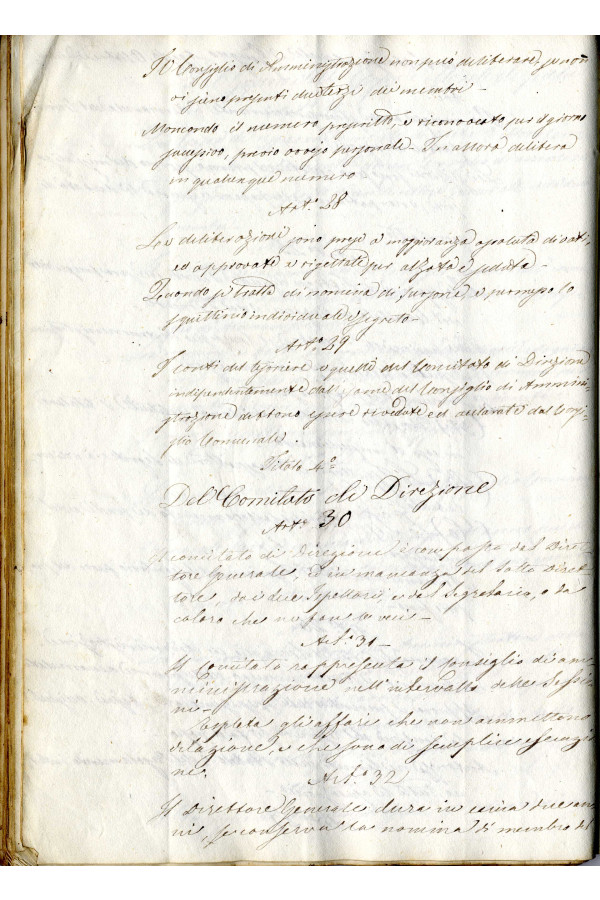 Il Consiglio di Amministrazione non può deliberare, se non
vi sieno presenti due terzi dei membri -
Mancando il numero prescritto, è riconvocato pel giorno
successivo, previo avviso personale - In allora delibera
in qualunque numero
Art.° 28
Le deliberazioni sono prese a maggioranza assoluta di voti,
ed approvate e rigettate per alzata e seduta -
Quando si tratta di nomina di persone, è permesso lo
squittinio individuale e segreto -
Art.° 29
I conti del Tesoriere e quelli del Comitato di Direzione
indipendentemente dall'esame del Consiglio di Ammini-
strazione devono essere rivedute ed del Consi-
glio Comunale.
Titolo 4°
Del Comitato di Direzione
Art.° 30
Il comitato di direzione è composto dal Diret-
tore Generale, ed in mancanza del Sotto Diret-
tore, dai due Ispettori, e dal Segretario, o da
coloro che ne fanno le veci -
Art.° 31 -
Il Comitato rappresenta il Consiglio di am-
ministrazione nell'intervallo delle Sessio-
ni -
Espleta gli affari che non ammettono
dilazione, e che sono di semplice esecuzio-
ne.
Art.° 32
Il Direttore Generale dura in carica due an-
ni, se conserva la nomina di membro del